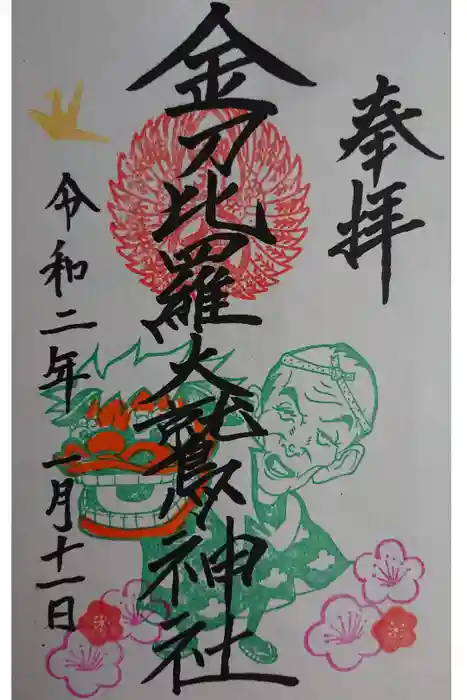 奉拝
金刀比羅大鷲神社
令和二年一月十一日